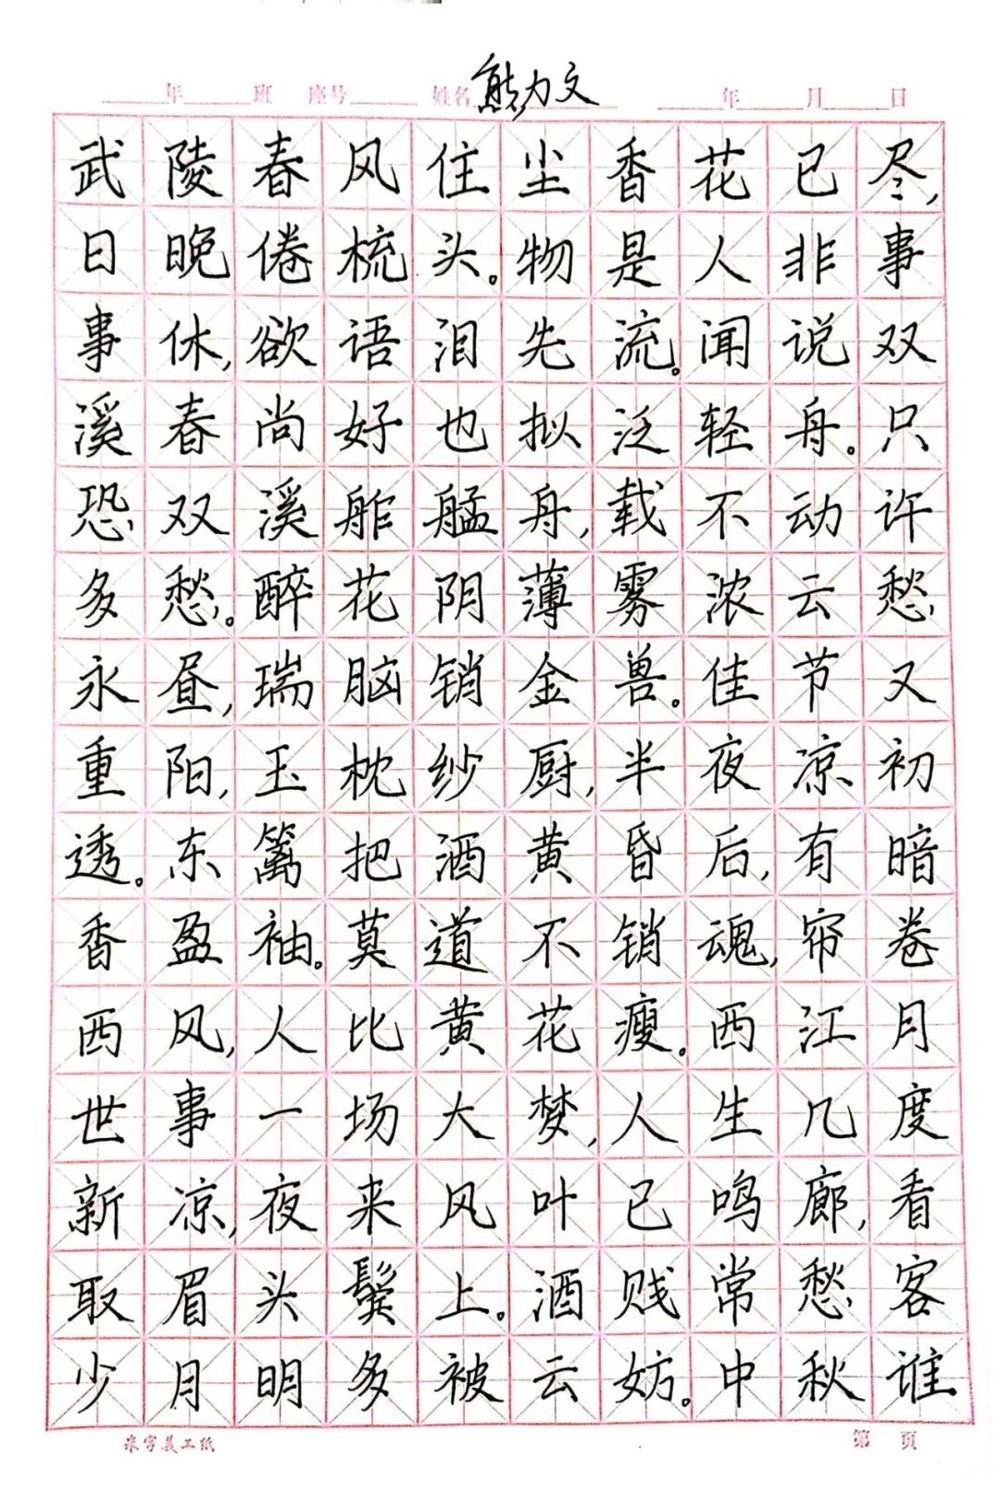 年 班 座号 姓名 熊力文 年 月 日
武陵春风住尘香花已尽,
日晚倦梳头。物是人非事
事休,欲语泪先流。闻说双
溪春尚好也拟泛轻舟。只
恐双溪舴艋舟,载不动许
多愁。醉花阴薄雾浓云愁
永昼,瑞脑销金兽。佳节又
重阳,玉枕纱厨,半夜凉初
透。东篱把酒黄昏后,有暗
香盈袖。莫道不销魂,帘卷
西风,人比黄花瘦。西江月
世事一场大梦,人生几度
新凉,夜来风叶已鸣廊,看
取眉头鬓上。酒贱常愁客
少月明多被云妨。中秋谁
米字美工纸 第 页